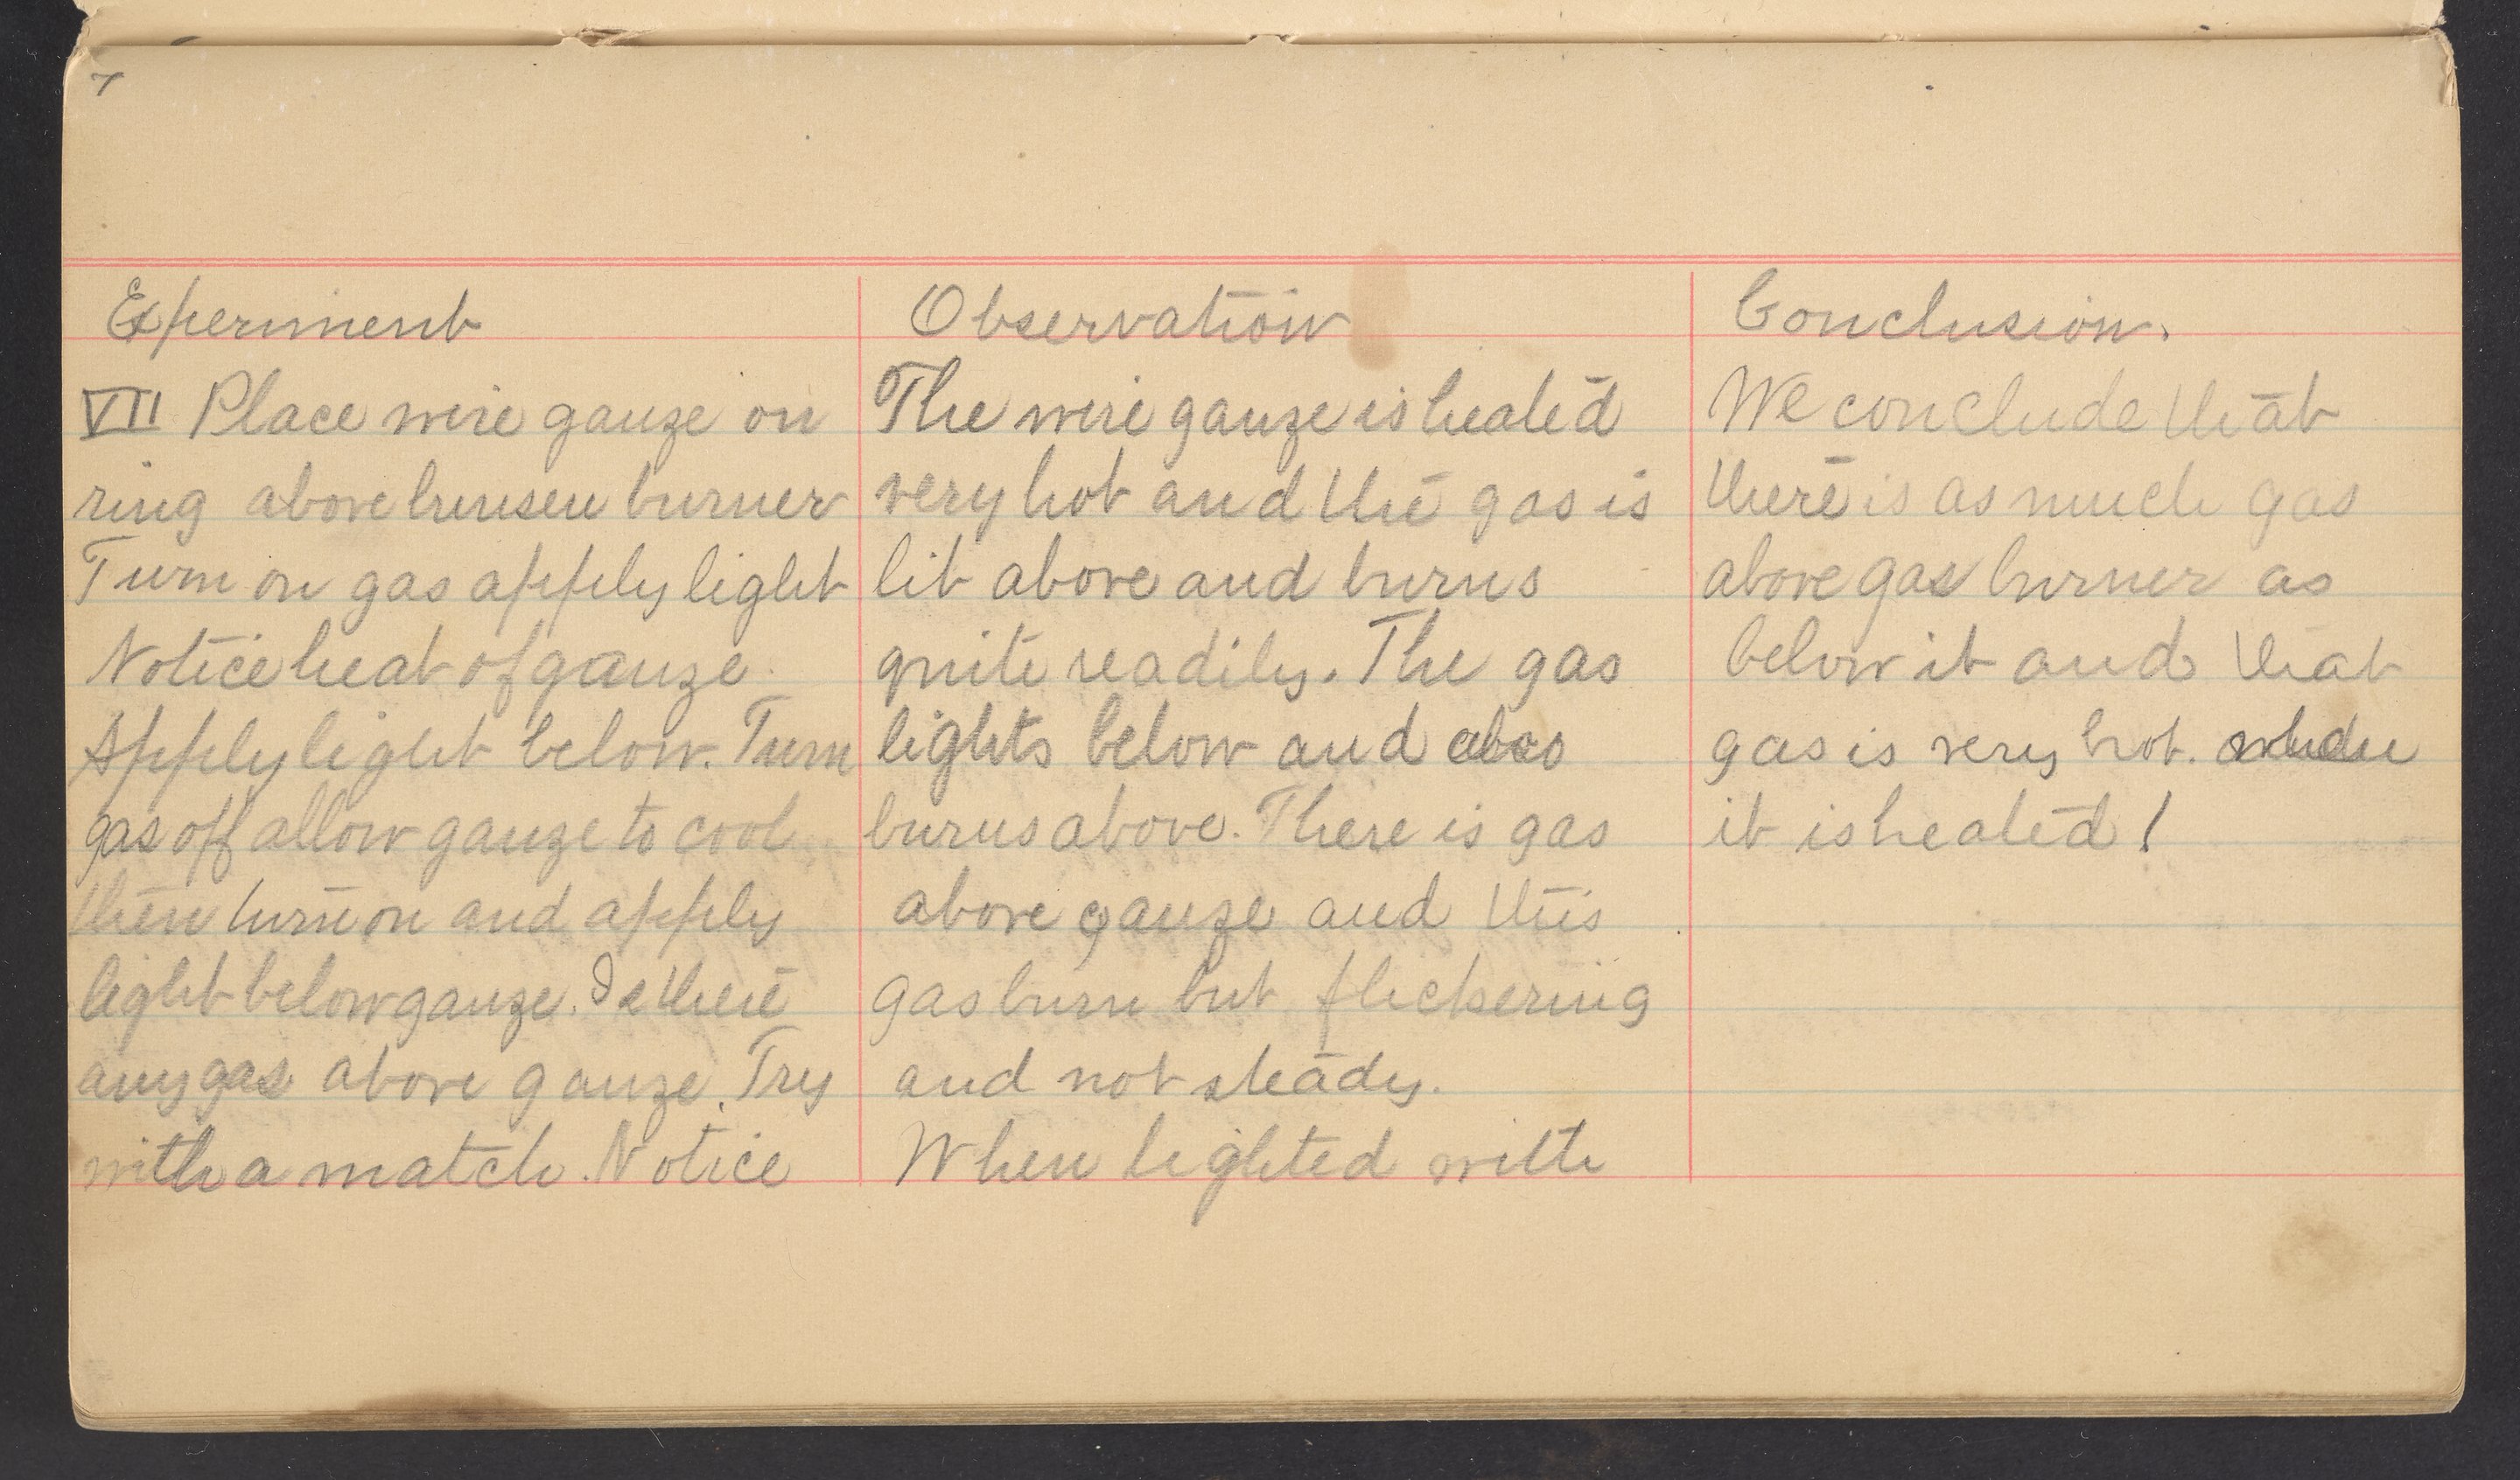 7
Experiment
VII Place wire gauze on
ring above bunsen burner
Turn on gas apply light
Notice heat of gauze.
Apply light below. Turn
gas off allow gauze to cool
then turn on and apply
light below gauze. Is there
any gas above gauze. Try
with a match. Notice
Observation
The wire gauze is heated
very hot and the gas is
lit above and burns
quite readily. The gas
lights below and also
burns above. There is gas
above gauze and this
gas burn but flickering
and not steady.
When lighted with
Conclusion.
We conclude that
there is as much gas
above gas burner as
below it and that
gas is very hot. when
it is heated!